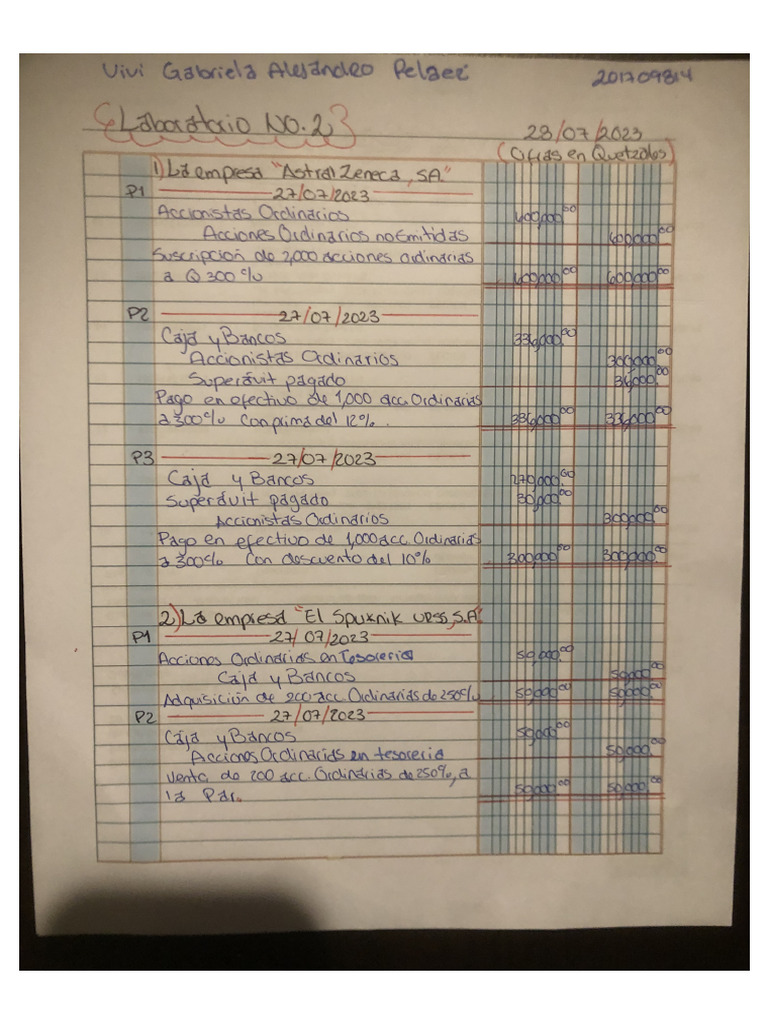 Vivi Gabriela Alejandro Pelaez 201709814
Laboratorio No. 2 28/07/2023
(Cifras en Quetzales)
1) La empresa "Astral Zeneca, SA"
P1 27/07/2023
Accionistas Ordinarios 600,000.00
Acciones Ordinarios no Emitidas 600,000.00
Suscripción de 2,000 acciones ordinarias
a Q 300 % 600,000.00 600,000.00
P2 27/07/2023
Caja y Bancos 336,000.00
Accionistas Ordinarios 300,000.00
Superávit pagado 36,000.00
Pago en efectivo de 1,000 acc. Ordinarias
a 300% con prima del 12%. 336,000.00 336,000.00
P3 27/07/2023
Caja y Bancos 270,000.00
Superávit pagado 30,000.00
Accionistas Ordinarios 300,000.00
Pago en efectivo de 1,000 acc. Ordinarias
a 300% con descuento del 10% 300,000.00 300,000.00
2) La empresa "El Spuxnik URSS, S.A"
P1 27/07/2023
Acciones Ordinarias en Tesoreria 50,000.00
Caja y Bancos 50,000.00
Adquisición de 200 acc. Ordinarias de 250% 50,000.00 50,000.00
P2 27/07/2023
Caja y Bancos 50,000.00
Acciones Ordinarias en tesoreria 50,000.00
Venta de 200 acc. Ordinarias de 250%, a
la Par. 50,000.00 50,000.00